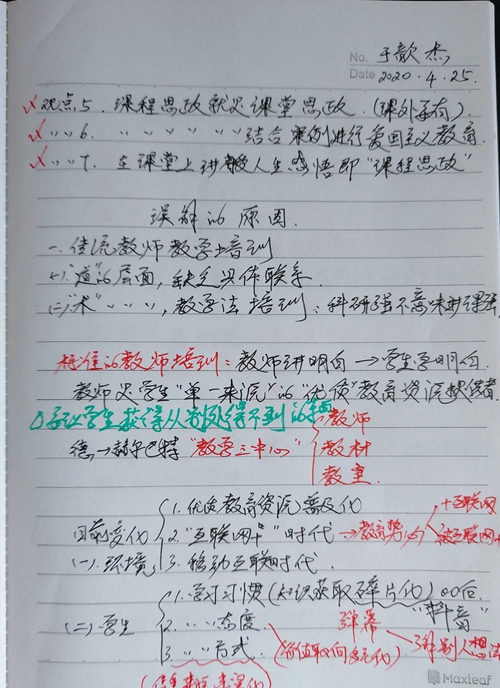 No. 于歆杰
Date 2020.4.25.
√ 观点5. 课程思政就是课堂思政.(课外否有)
√ 〃 〃 6. 〃 〃 〃 〃 〃 〃 结合案例进行爱国主义教育.
√ 〃 〃 7. 在课堂上讲授人生感悟即"课程思政"
误解的原因.
一. 传统教师教学培训
(一)"道"的层面,缺乏具体联系.
(二)"术"〃 〃 〃,教学法培训:科研强不意味讲课强
标准的教师培训:教师讲明白→学生学明白.
教师是学生"单一来源"的"优质"教育资源提供者.
让学生获得从别处得不到的
德→赫尔巴特"教学三中心" 教师
教材
教室.
目前变化 1. 优质教育资源普及化
2."互联网+"时代→教育+互联网
(一).环境 3. 移动互联时代. 被互联网+
(二).学生 1. 学习习惯(知识获取碎片化) 00后 "抖音"
2. 〃 〃 态度. 弹幕
3 〃 〃 方式. (价值取向多元化) 别人想法
Maxleaf